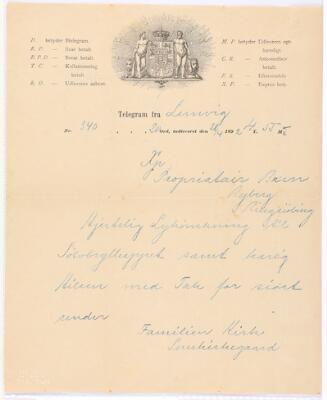 D. betyder Iiltelegram.
R. P. — Svar betalt.
R. P. D. — Svar betalt.
T. C. — Kollationering betalt.
R. O. — Udleveres aabent.
M. P. betyder Udleveres egenhændigt.
C. R. — Antagelsesbevis betalt.
F. S. — Eftersendes
X. P. — Expres betalt.
Telegram fra Lemvig
Nr. 340 , , , , 20 Ord, indleveret den 189
Xp
Propriatair Brun
Nyberg
Hjertelig Lykønskning
Sølvbryllupet samt kærlig
Hilsen med Tak for sidst
sender
Familien Kirk
Sønderkirkegaard